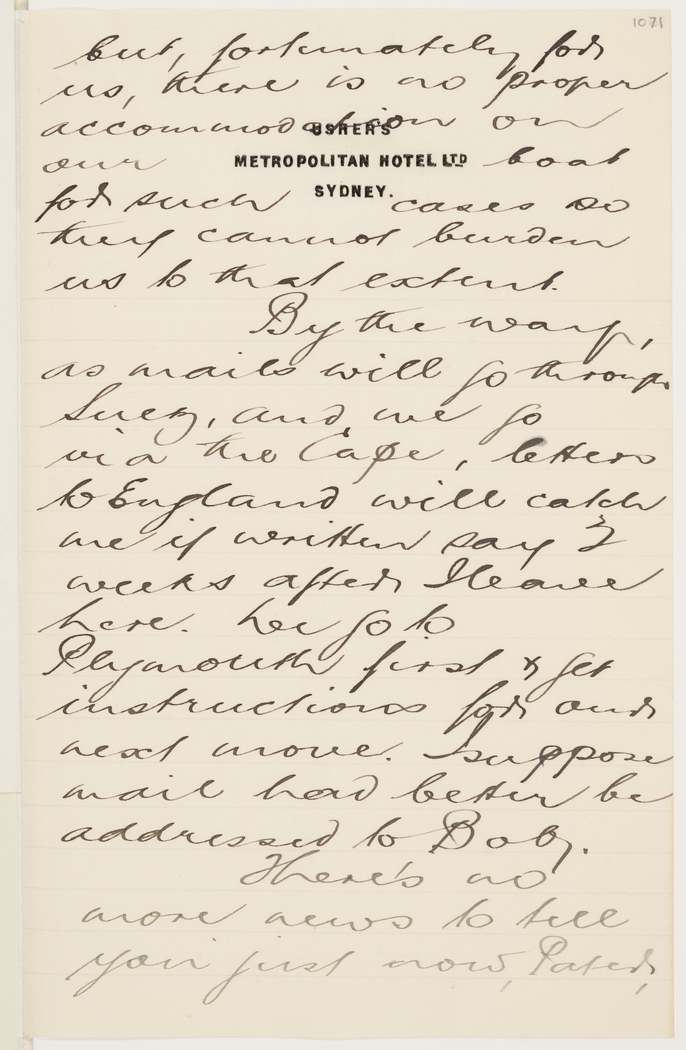 1071
but, fortunately for
us, there is no proper
accommodation on
USHER'S
our boat
METROPOLITAN HOTEL LTD
SYDNEY.
for such cases so
they cannot burden
us to that extent.
By the way,
as mails will go through
Suez, and we go
via the Cape, letters
to England will catch
me if written say 2
weeks after I leave
here. We go to
Plymouth first & get
instructions for our
next move. I suppose
mail had better be
addressed to Boby.
There's no
more news to tell
you just now, Pater,